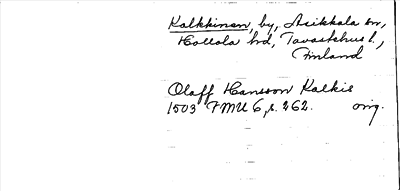 Kalkkinen, by, Asikkala sn,
Hollola hd, Tavastehus l.,
Finland
Olaff Hansson Kalkis
1503 FMU 6, s. 262. orig.